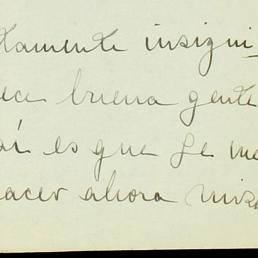 tamente insigni-
ece buena gente
así es que se me
hacer ahora mis